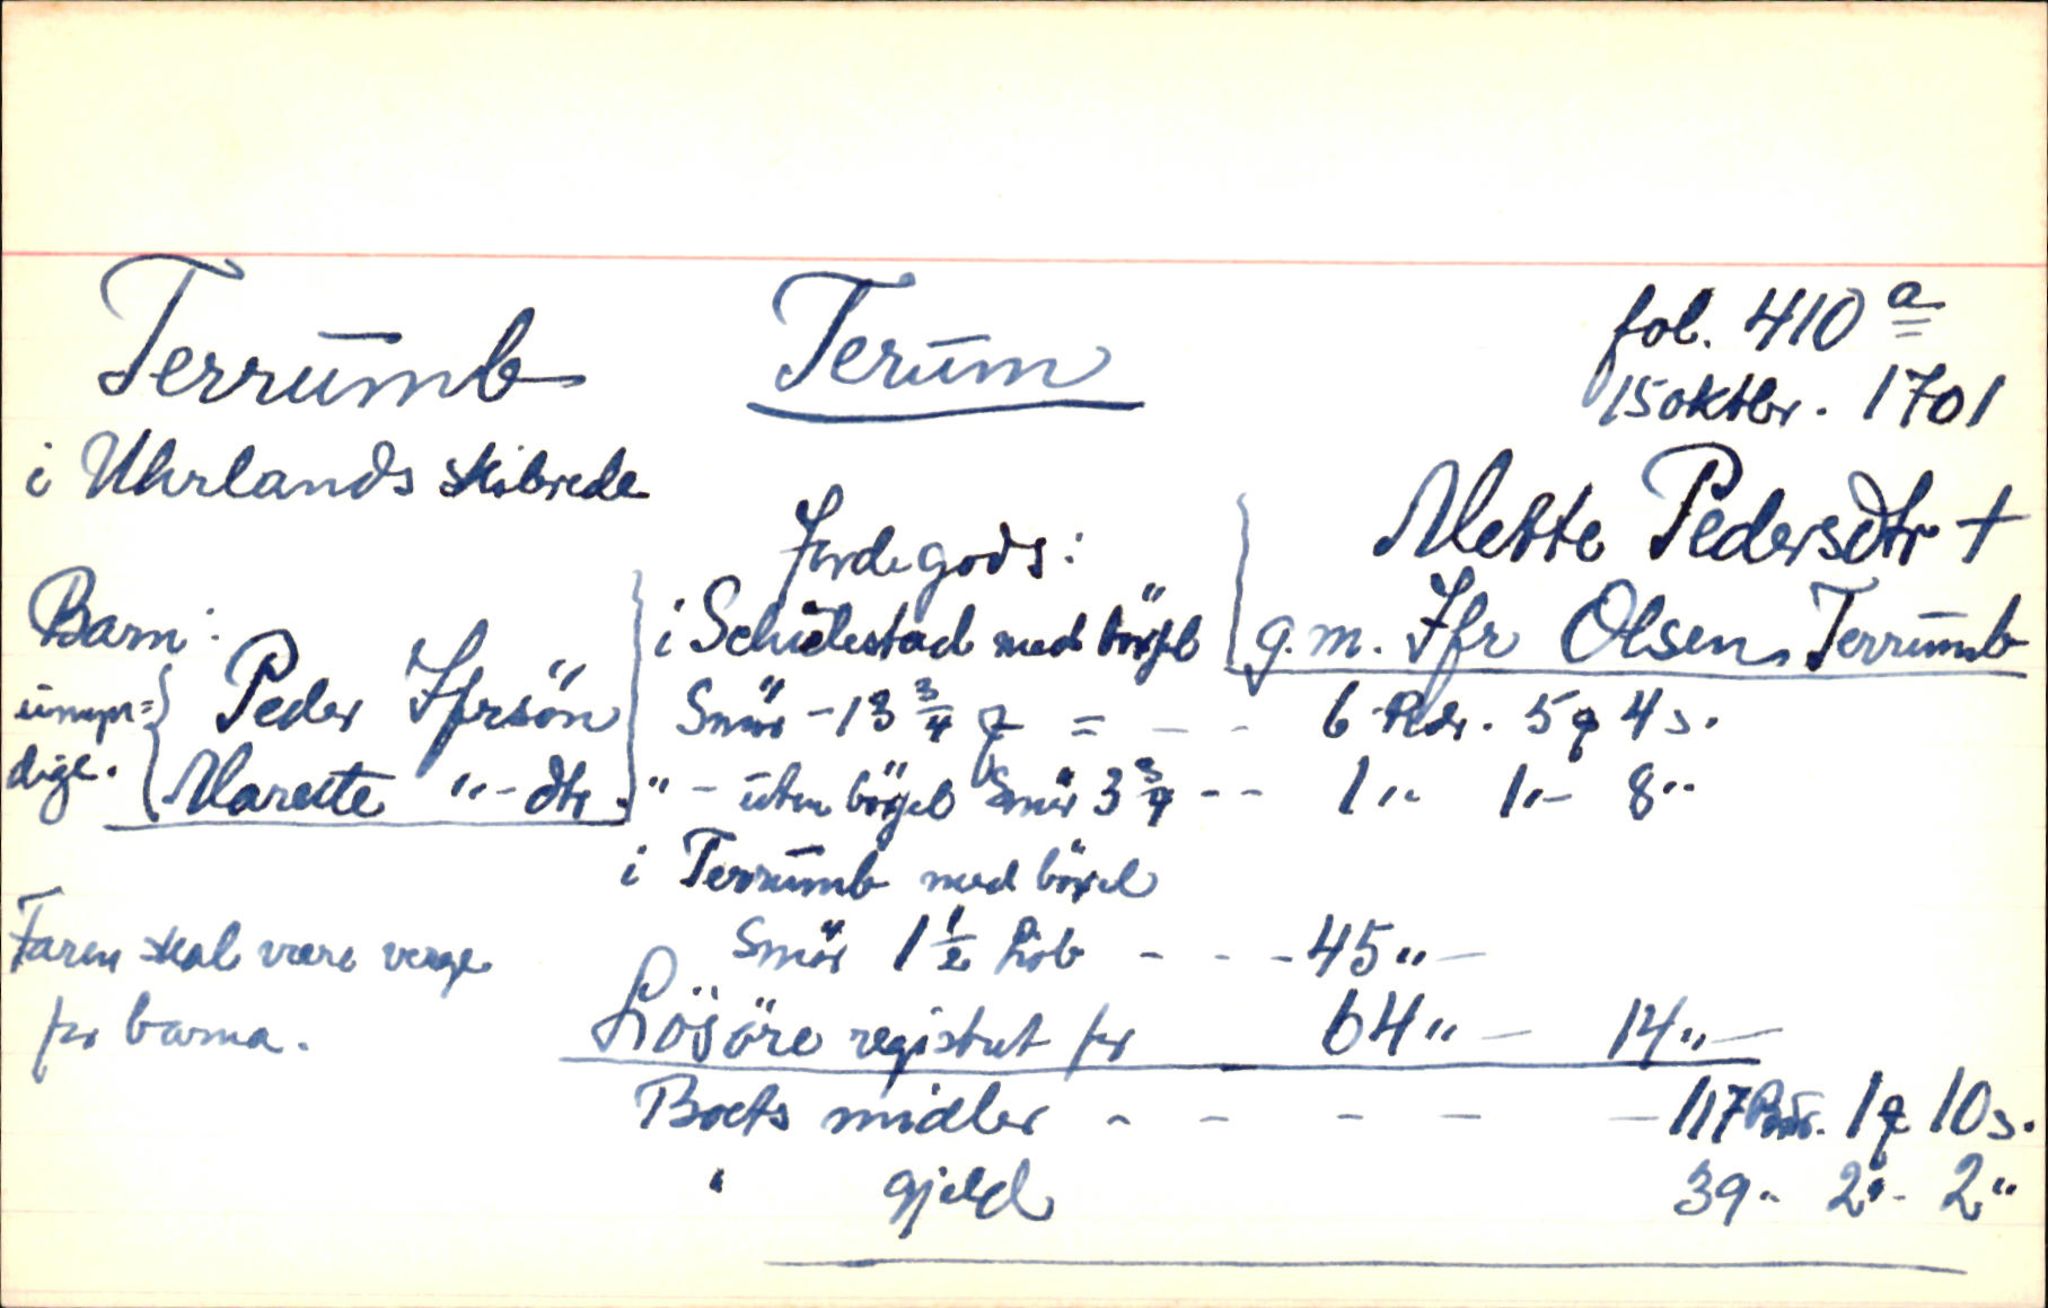 Terrumb Terum fol. 410 a
15 oktbr. 1701
i Uhrlands skibrede
Mette Pedersdtr +
g. m. Ifr Olsen Terrumb
Barn:
umyn=
dige.
Peder Ifrsön
Marete "-dtr.
Jordegods:
i Schulestad med böxel
Smör - 13 3/4 = - - 6 Rdr. 5 4 s.
" - uten böxel Smör 3 3/4 - - 1 " 1 "- 8 "
i Terrumb med böxel
Smör 1 1/2 Löb - - - 45 " -
Lösöre registrert for 64 " - 14 " -
Boets midler - - - - - 117 Rdr. 1 10 s.
" gjeld 39 " 2 "- 2 "
Faren skal være verge
for barna.